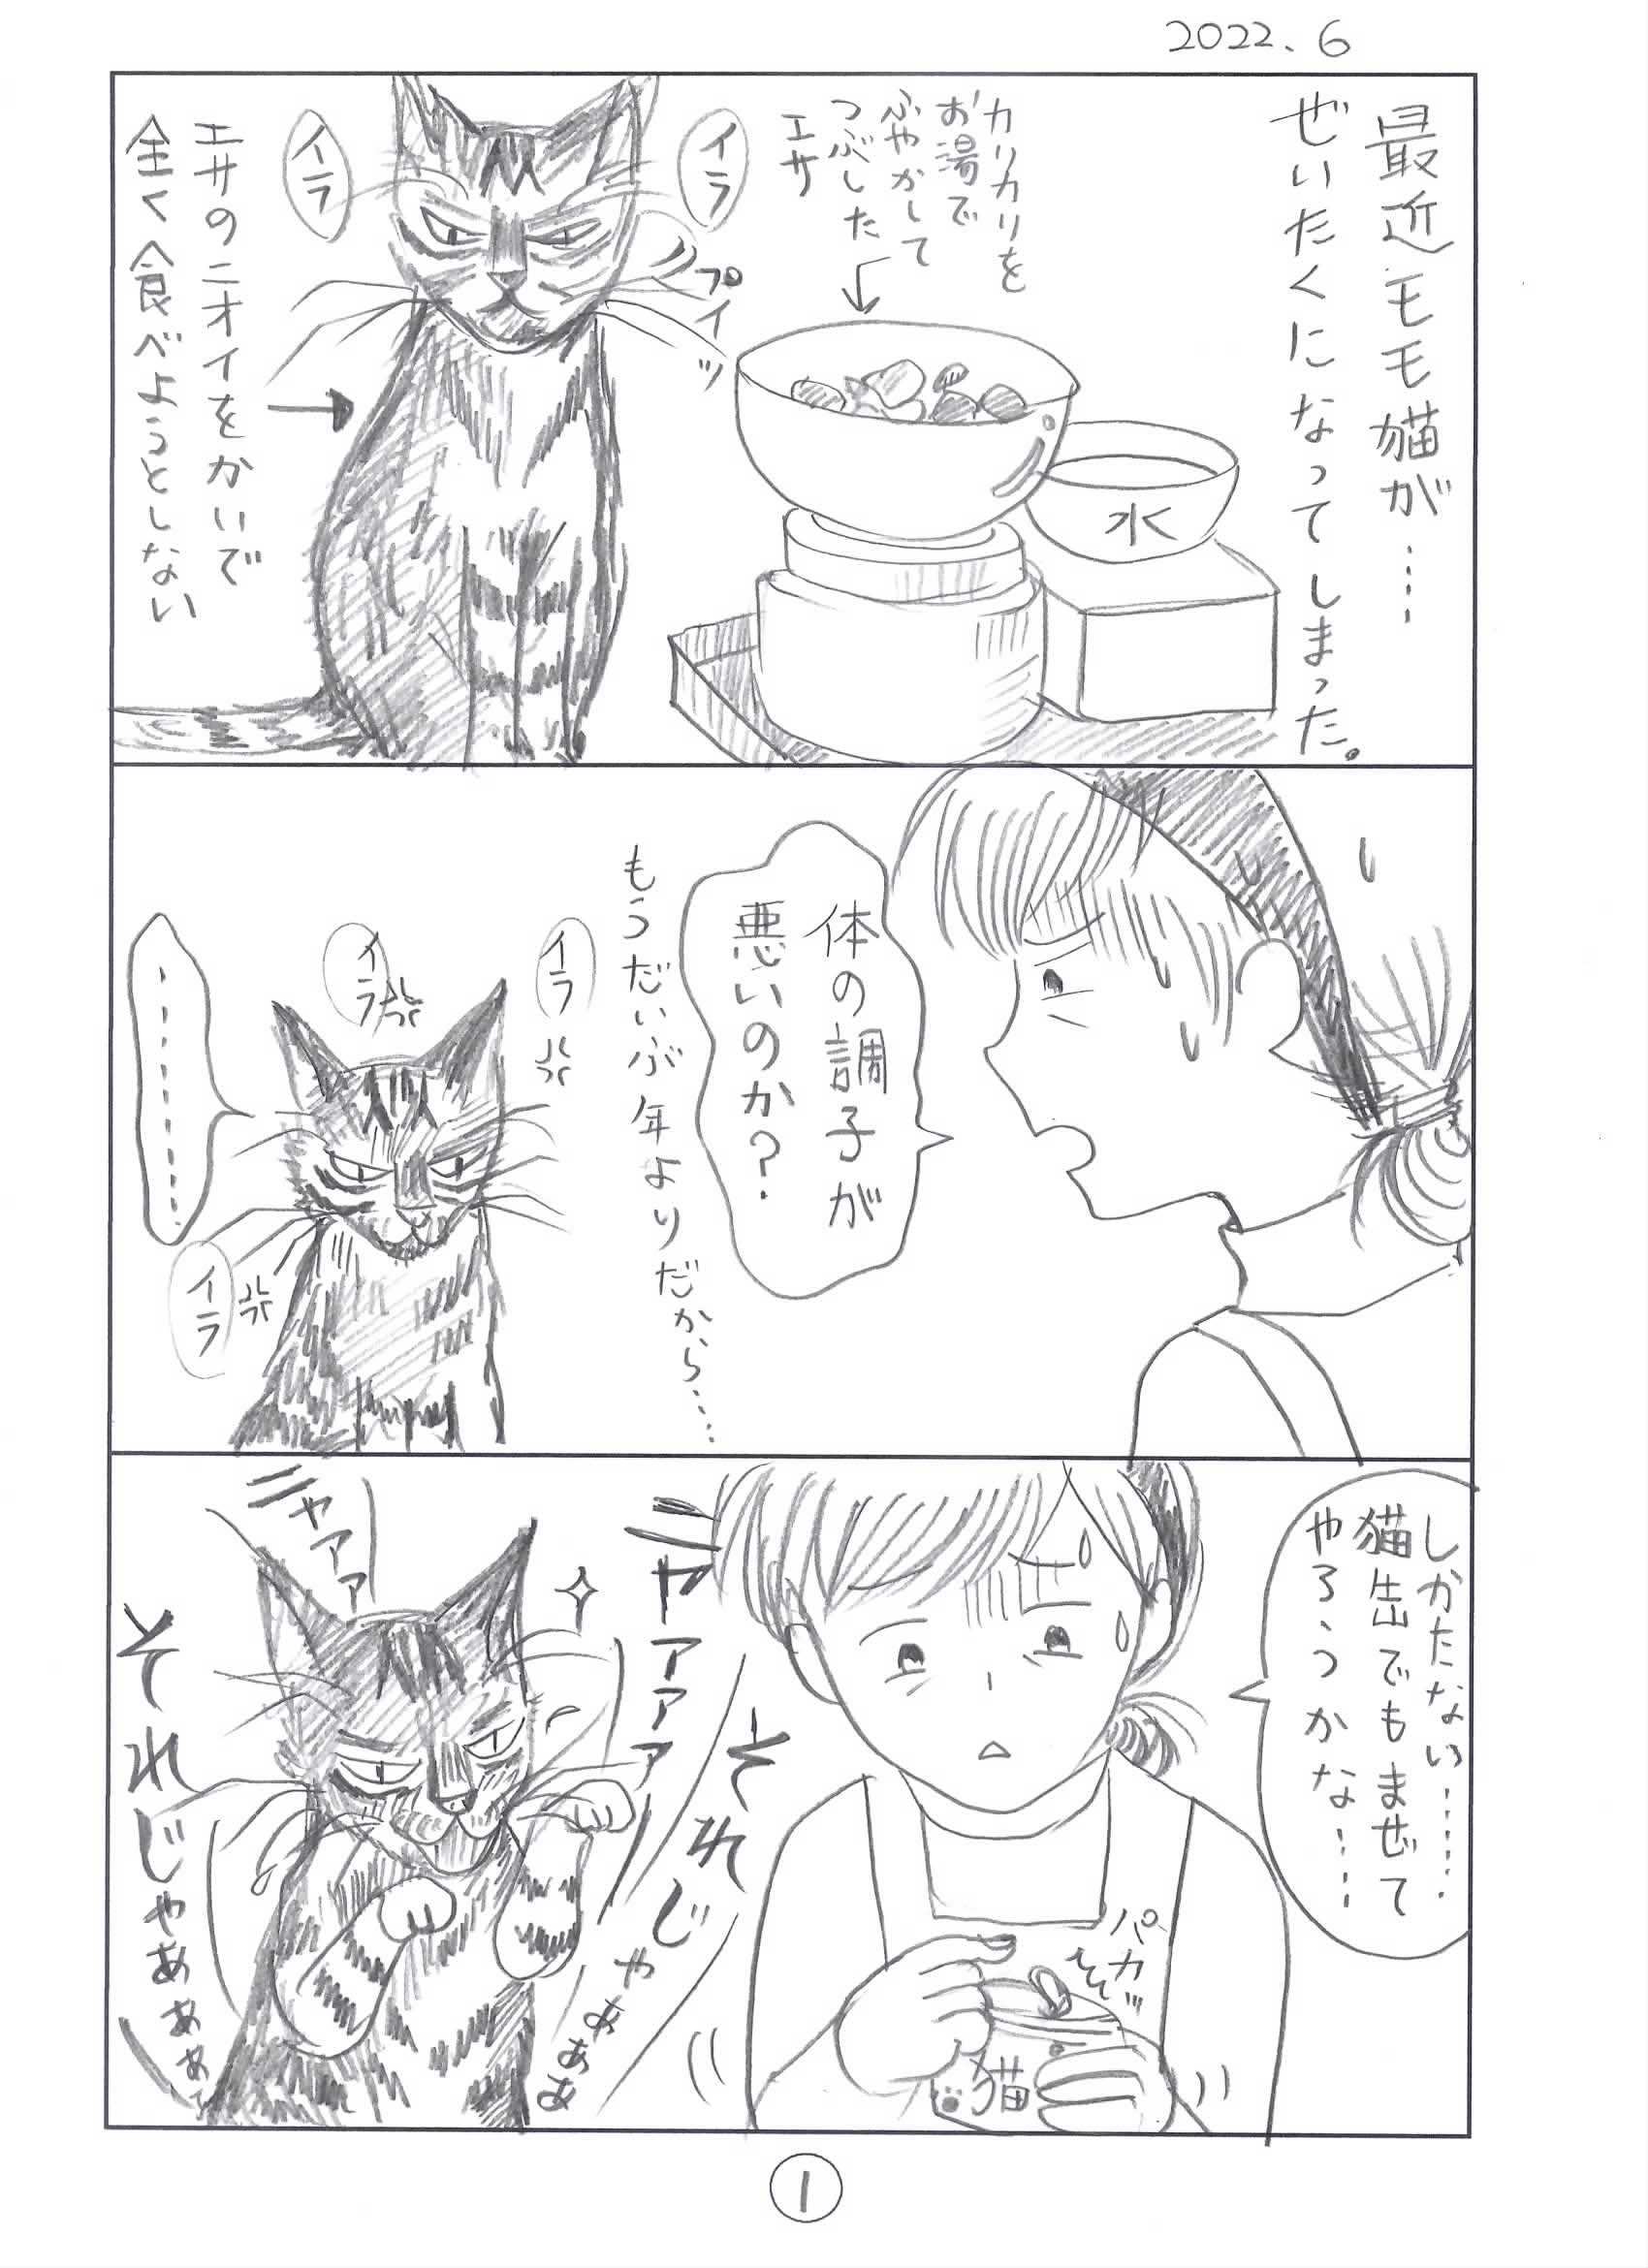 2022.6
最近モモ猫が……
ぜいたくになってしまった。
カリカリを
お湯で
ふやかして
つぶした
エサ
水
イラ
プイッ
イラ
エサのニオイをかいで
全く食べようとしない
体の調子が
悪いのか?
もうだいぶ年よりだから……
イラ
イラ
………
イラ
しかたない………
猫缶でもまぜて
やろうかな……
パカッ
猫
ニャアアアァ
それじゃぁぁぁ
ニャアアァ
それじゃあぁぁ
1